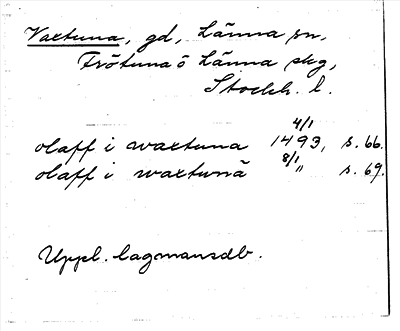 Vaxtuna, gd, Länna sn,
Frötuna o Länna skg,
Stockh. l.
olaff i waxtuna 4/1 1493, s. 66.
olaff i waxtunā 8/1 " s. 69.
Uppl. lagmansdb.